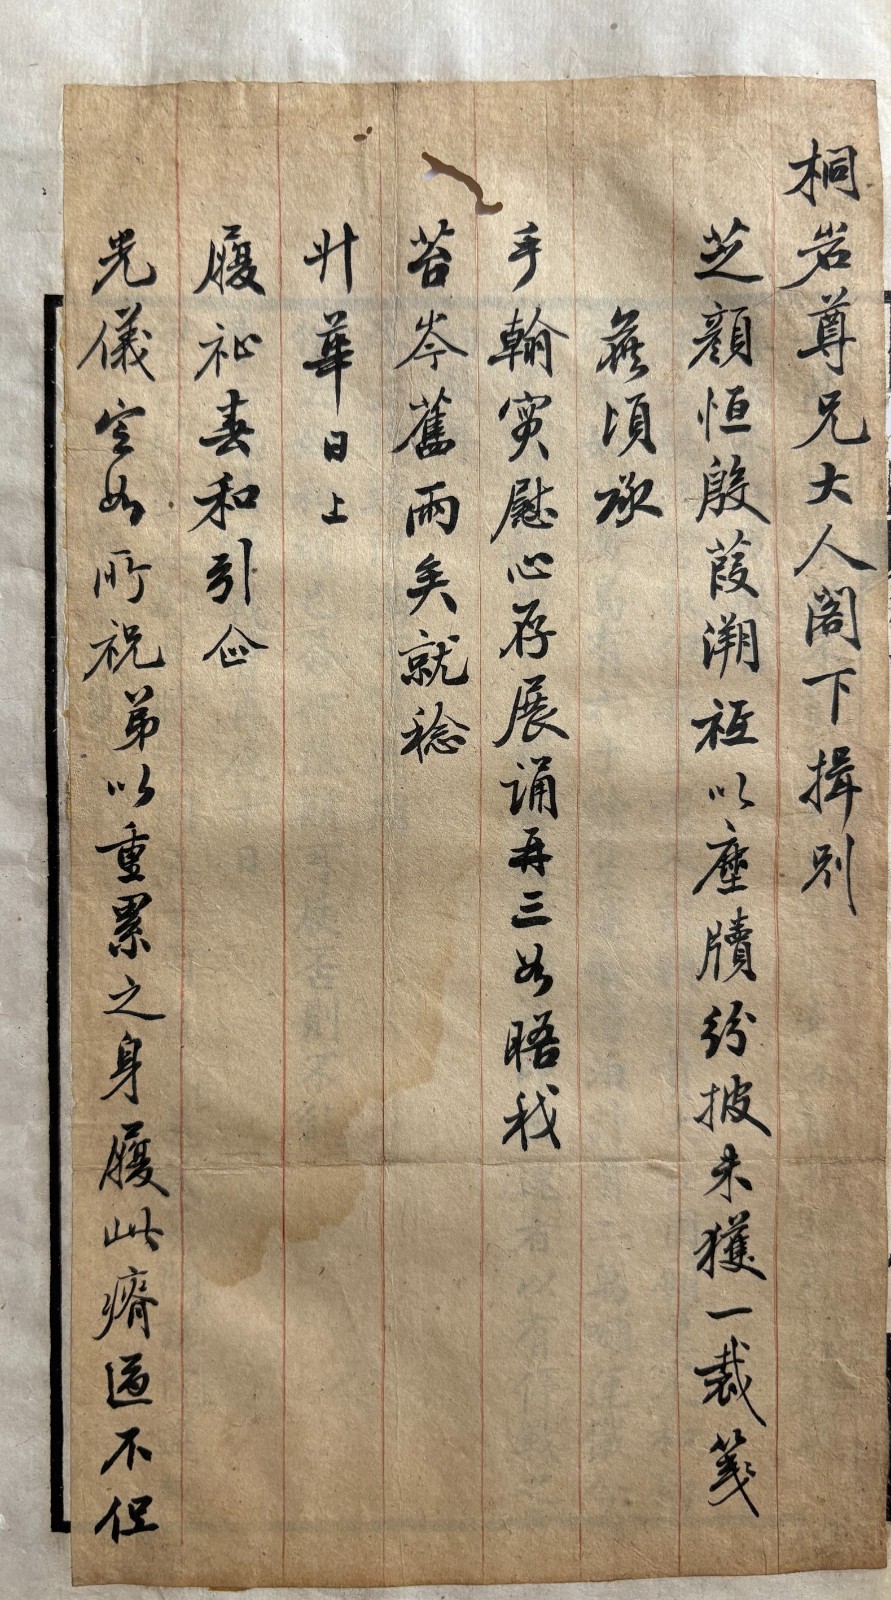 桐岩尊兄大人閣下揖别
芝顔恒殷葭溯祗以塵牘紛披未獲一裁箋
蕪頃承
手翰寔慰心存展誦再三如晤我
苔岑舊雨矣就稔
升華日上
履祉春和引企
光儀定如所祝弟以重累之身履此瘠區不但